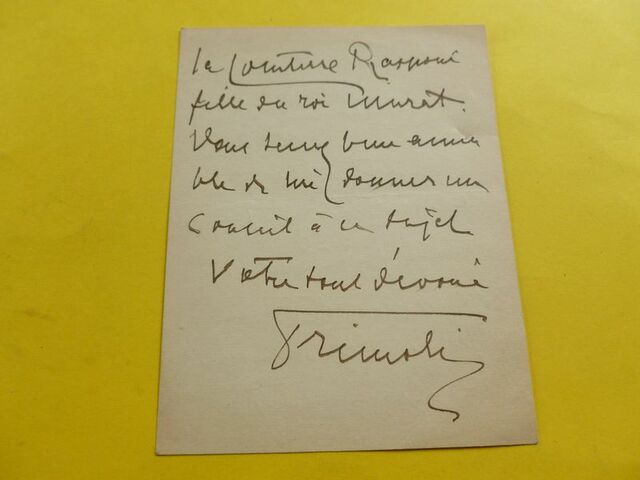 la Comtesse Rasponi
fille du roi Murat.
Vous seriez bien aima
ble de me donner un
conseil à ce sujet
Votre tout dévoué
Primoli